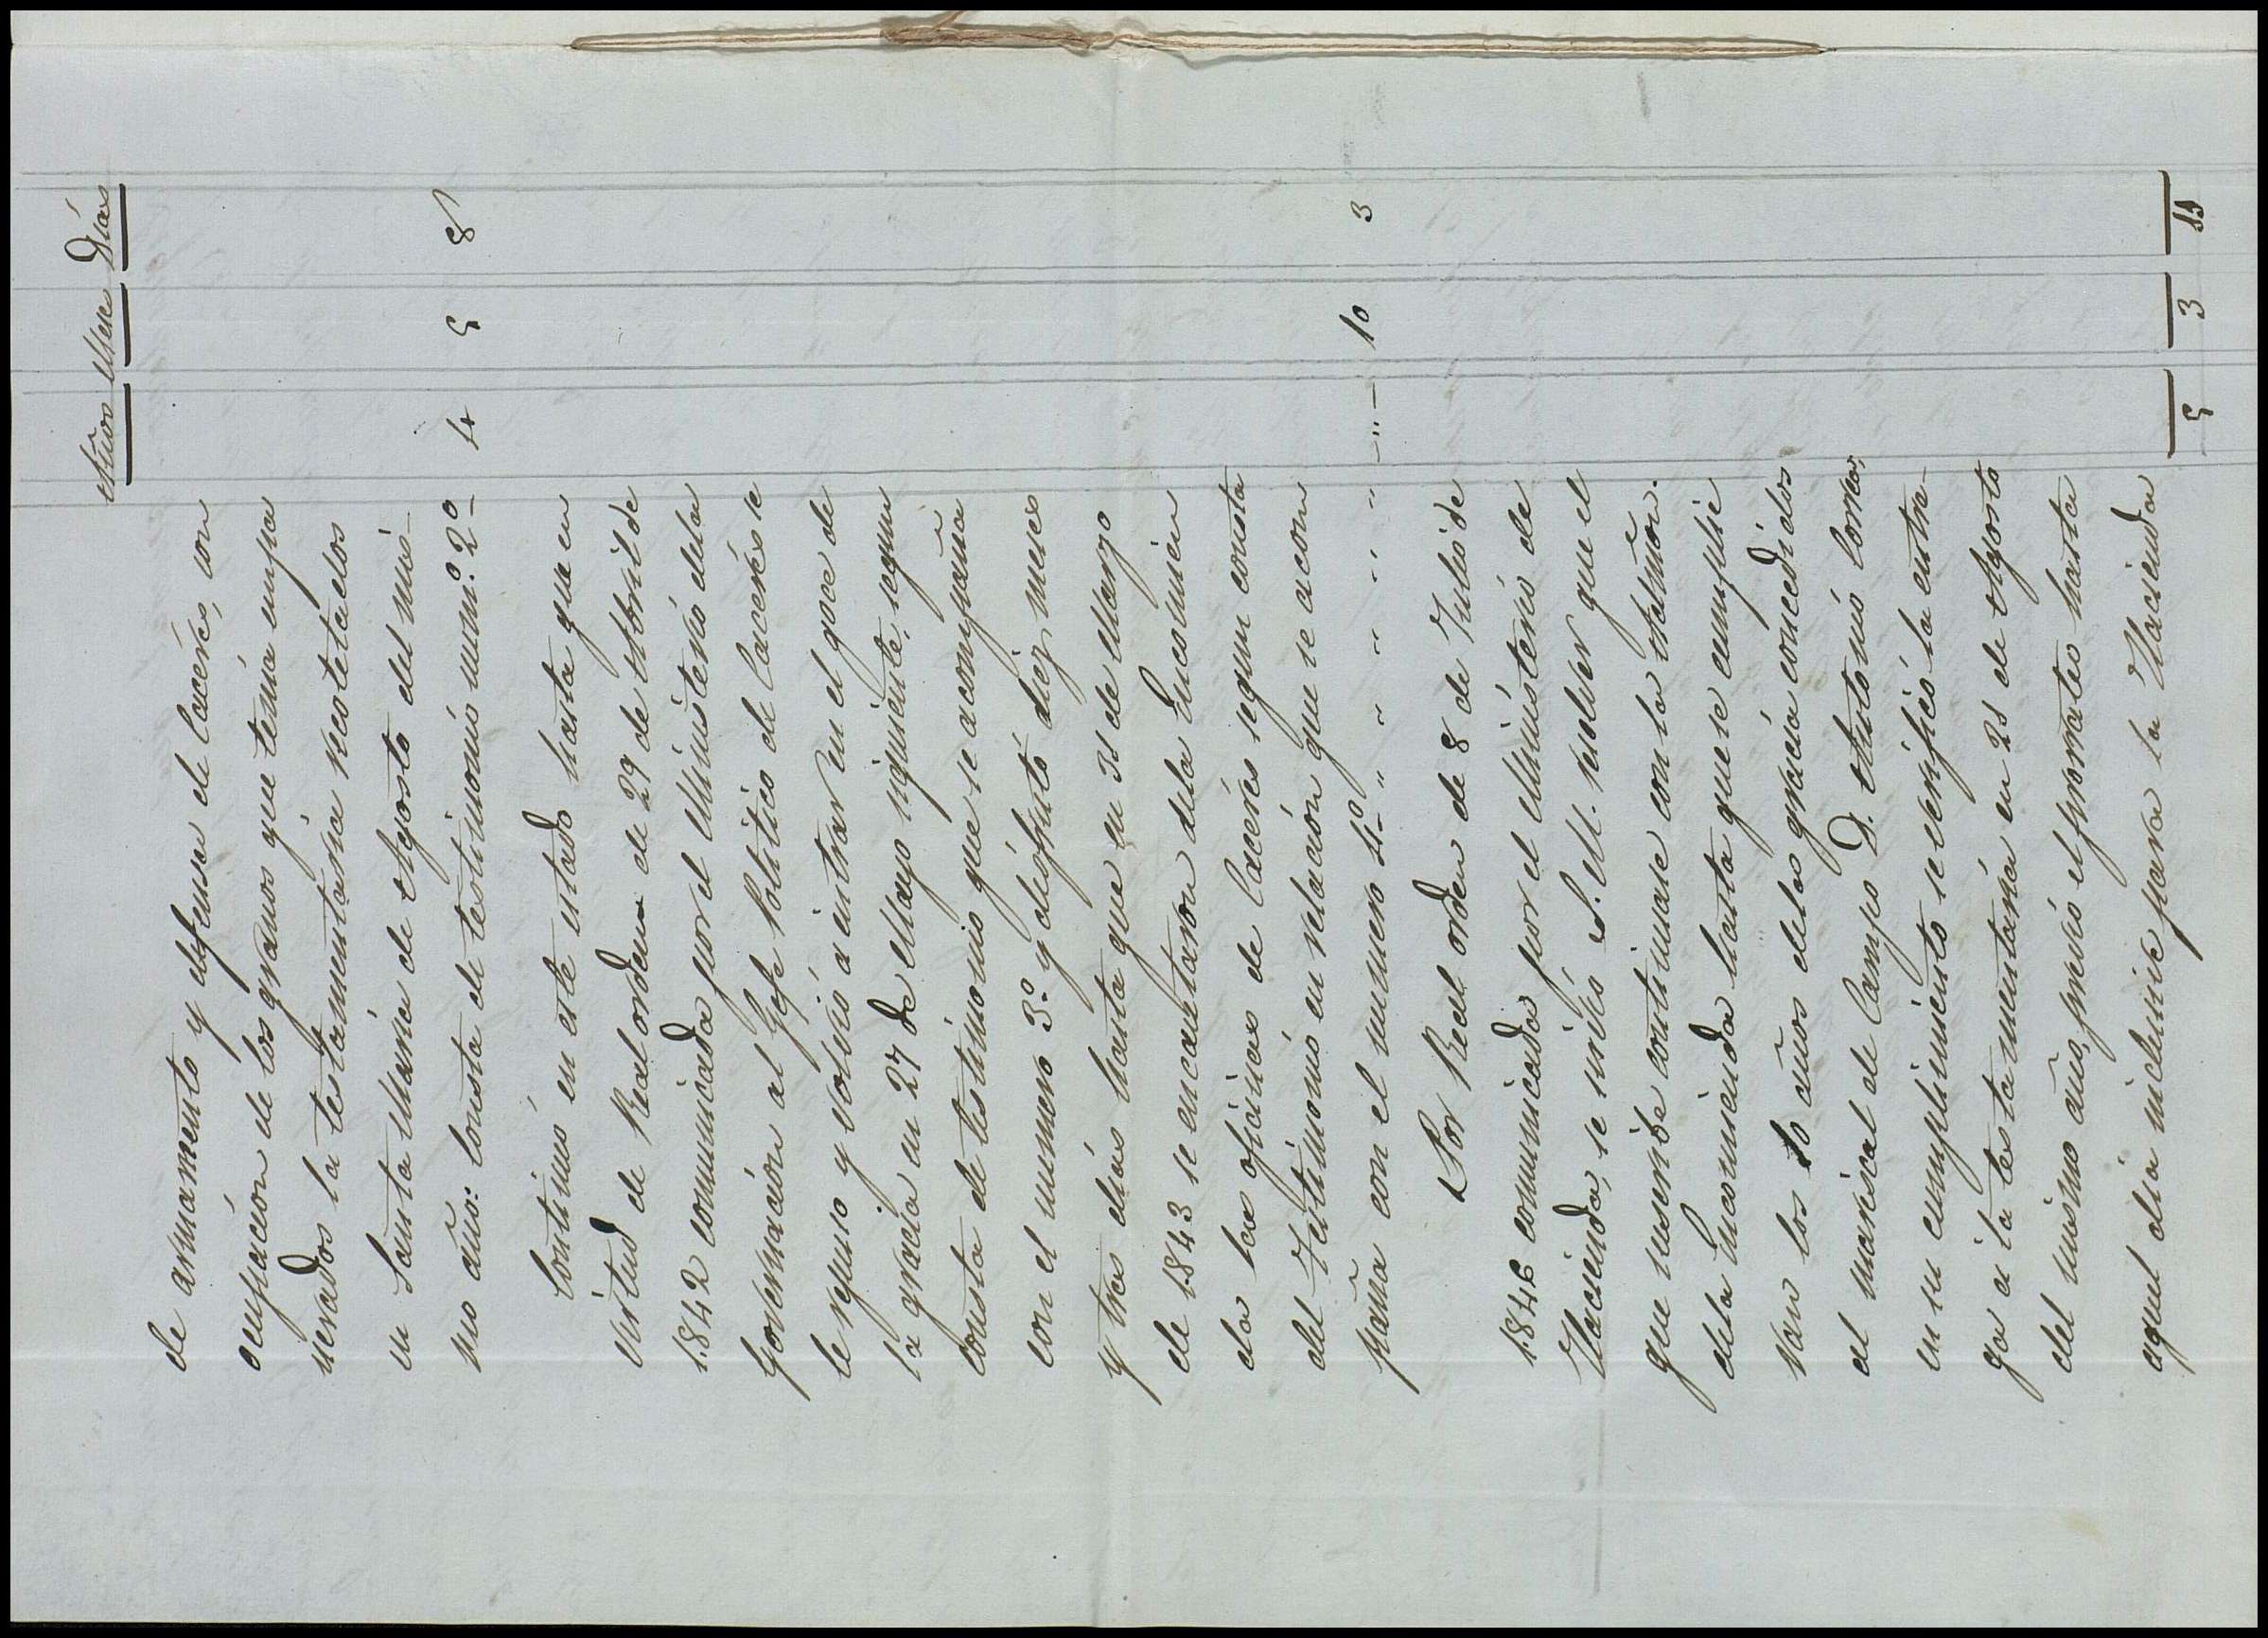 Años Meses Días
de armamento y defensa de Caceres, con
ocupacion de los granos que tenia empa
nerados la testamentaria recoletados
en Santa Maria de Agosto del mis-
mo año: Consta de testimonio num.º 2º 4 5 8
Continuó en este estado hasta que en
virtud de Real orden de 29 de Abril de
1.842 comunicada por el Ministerio dela
Governacion al Gefe Politico de Caceres se
le repuso y volvió á entrar en el goce de
la gracia en 27 de Mayo siguiente, segun
consta de testimonio que se acompaña
con el numero 3.º y disfrutó diez meses
y tres dias hasta que en 31 de Marzo
de 1.843 se encautaron dela Encomien
da las oficinas de Caceres segun consta
del Testimonio en relacion que se acom
paña con el numero 4º " " " " " " " 10 3
Por Real orden de 8 de Julio de
1.846 comunicada por el Ministerio de
Hacienda, se sirvió S. M. resolver que el
que suscribe continuase con la Admon.
dela Encomienda hasta que se cumplie
ran los 10 años delas gracia concedidos
al mariscal de Campo D. Antonio Correa,
en su cumplimiento se verificó la entre-
ga á la testamentaria en 21 de Agosto
del mismo año, previo el prorrateo hasta
aquel dia inclusive para la Hacienda
5 3 11